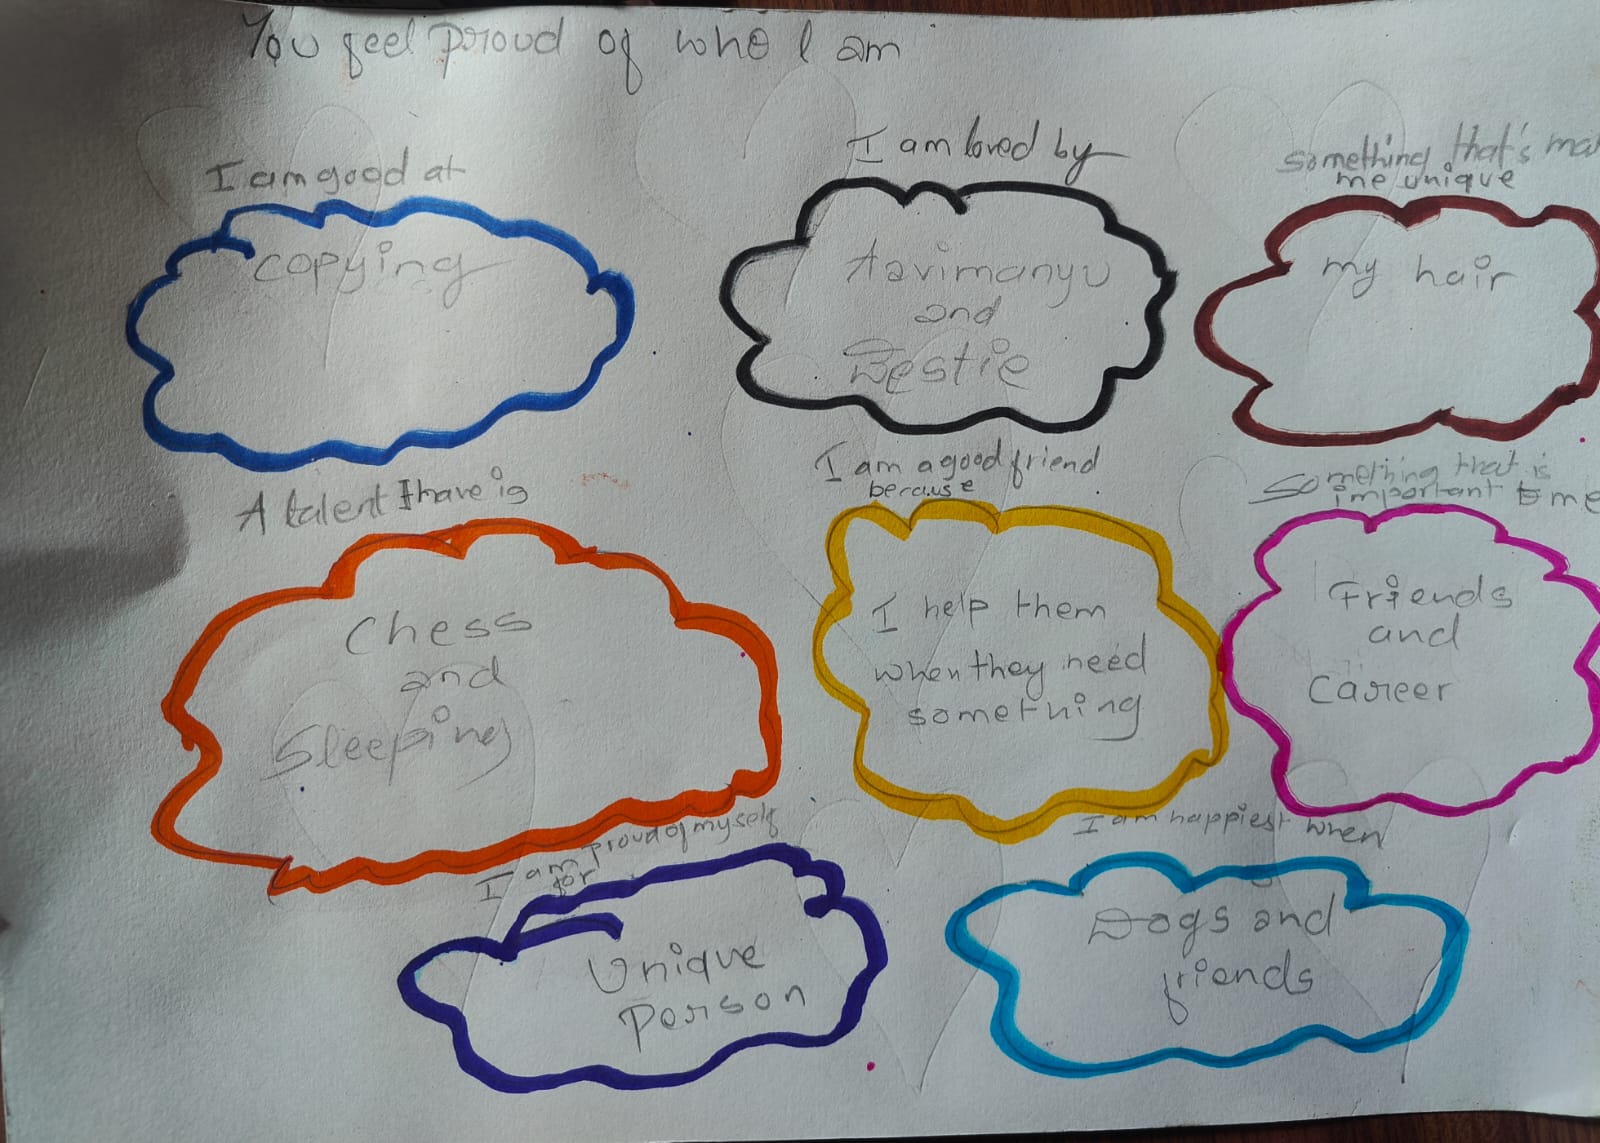 You feel proud of who I am
I am good at
copying
I am loved by
Aavimanyu
and
Bestie
something that's ma
me unique
my hair
A talent I have is
Chess
and
Sleeping
I am a good friend
because
I help them
when they need
something
Something that is
important to me
Friends
and
Career
I am proud of myself
for
Unique
Person
I am happiest when
Dogs and
friends